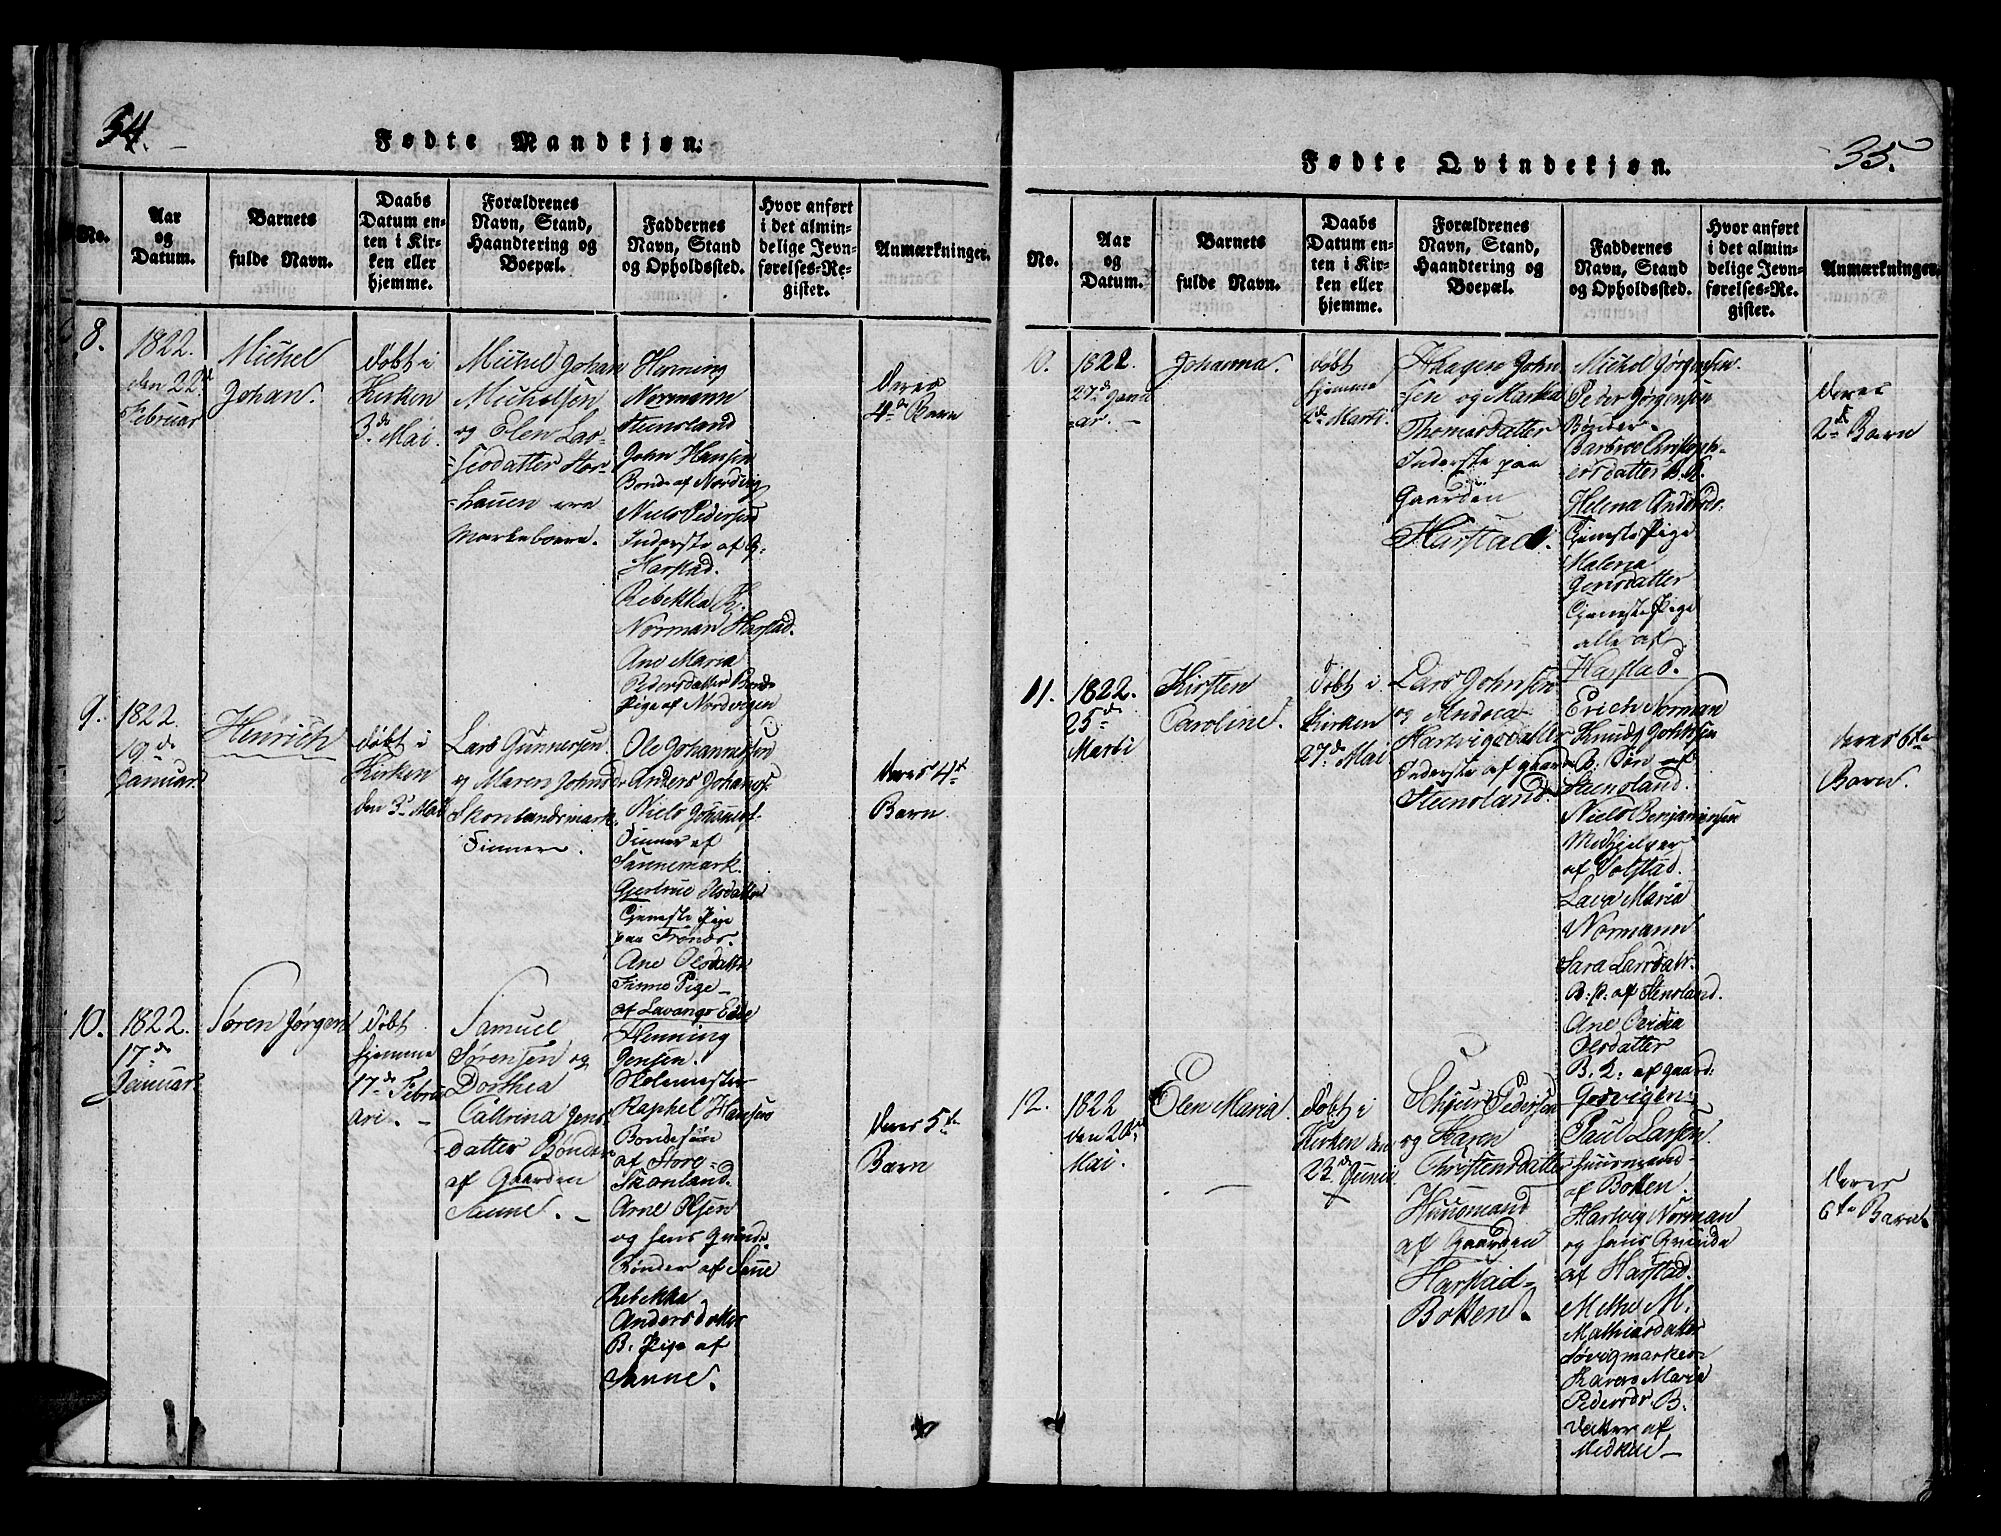 34.
Fødte Mandkjøn.
No.
Aar
og
Datum.
Barnets
fulde Navn.
Daabs
Datum en-
ten i Kir-
ken eller
hjemme.
Forældrenes
Navn, Stand,
Haandtering og
Boepæl.
Faddernes
Navn, Stand
og Opholdssted.
Hvor anført
i det almin-
delige Jevn-
førelses-Re-
gister.
Anmærkninger.
8.
1822.
den 22de
Februar
Michel
Johan.
døbt i
Kirken
3de Mai.
Michel Johan
Michelsen
og Elen Lar-
datter Stor-
hauen
Markeboere.
Horning
Normann
Steensland
John Hansen
Bonde af Nordvig
Niels Pedersen
Inderste af G.
Harstad.
Rebekka K.
Norman Harstad.
Ane Maria
Pedersdatter Bonde
Pige af Nordvigen
deres
4de Barn
9.
1822.
19de
Januar
Henrich
døbt i
Kirken
den 3de Mai
Lars Gunnersen
og Maren Johnsd
Skonlandsmark.
Finner.
Ole Johannessen
Anders Johans.
Niels Johannes.
Finner af
Sannemark.
Gjertrue Olsdatter
Tjeneste Pige
paa Trondr.
Ane Olsdatter
Finne Pige
af Lavangs Eide
deres 4de
Barn
10.
1822.
17de
Januar
Søren Jørgen
døbt
hjemme
17de Febru
ari.
Samuel
Sørensen og
Dorthea
Cathrina Jens
datter Bønder
af Gaarden
Sanne.
Henning
Jensen.
Skolemester
Raphel Hansen
Bondesøn
af Store
Skonland
Arne Olsen
og hans Qvinde
Bønder af Sane
Rebekka
Andersdatter
B. Pige af
Sanne.
deres 5te
Barn
35.
Fødte Qvindekjøn.
No.
Aar
og
Datum.
Barnets
fulde Navn.
Daabs
Datum en-
ten i Kir-
ken eller
hjemme.
Forældrenes
Navn, Stand,
Haandtering og
Boepæl.
Faddernes
Navn, Stand
og Opholdssted.
Hvor anført
i det almin-
delige Jevn-
førelses-Re-
gister.
Anmærkninger.
10.
1822.
27de Janu
ar.
Johanna.
døbt
hjemme
2de Marti.
Haagen John
sen og Marka
Thomasdatter
Inderste paa
Gaarden
Harstad.
Michel Jørgensen.
Peder Jørgensen
Bønder
Barbroe Christoph-
ersdatter B. K.
Helena Andersd.
Tjeneste Pige
Malena
Jensdatter
Tjeneste Pige
alle af
Harstad.
deres
2de Barn
11.
1822.
25de
Marti
Kirsten
Caroline.
døbt i
Kirken
27de Mai
Lars Johnsen
og Andrea
Hartvigsdatter
Inderste af gaard
Steensland.
Erich Norman
Knud Johnsen
B. Søn af
Steensland.
Niels Benjaminsen
Medhjelper
af Volstad.
Lava Maria
Normann
Sara Larsdatr.
B. P. af Stensland.
Ane
Olsdatter
B. Q. af gaard:
deres 6te
Barn.
12.
1822
den 20de
Mai.
Elen Maria
døbt i
Kirken den
23de Junii
Schjur Pedersen
og Karen
Christensdatter
Huusmand
af Gaarden
Harstad-
Botten.
Paul Larsen
huusmand
af Botten
Hartvig Norman
og hans Qvinde
af Harstad.
Methe M.
Mathiasdatter
Søvigmarken
Karen Maria
Pedersdr. B.
datter af
Medkile
deres
6te Barn